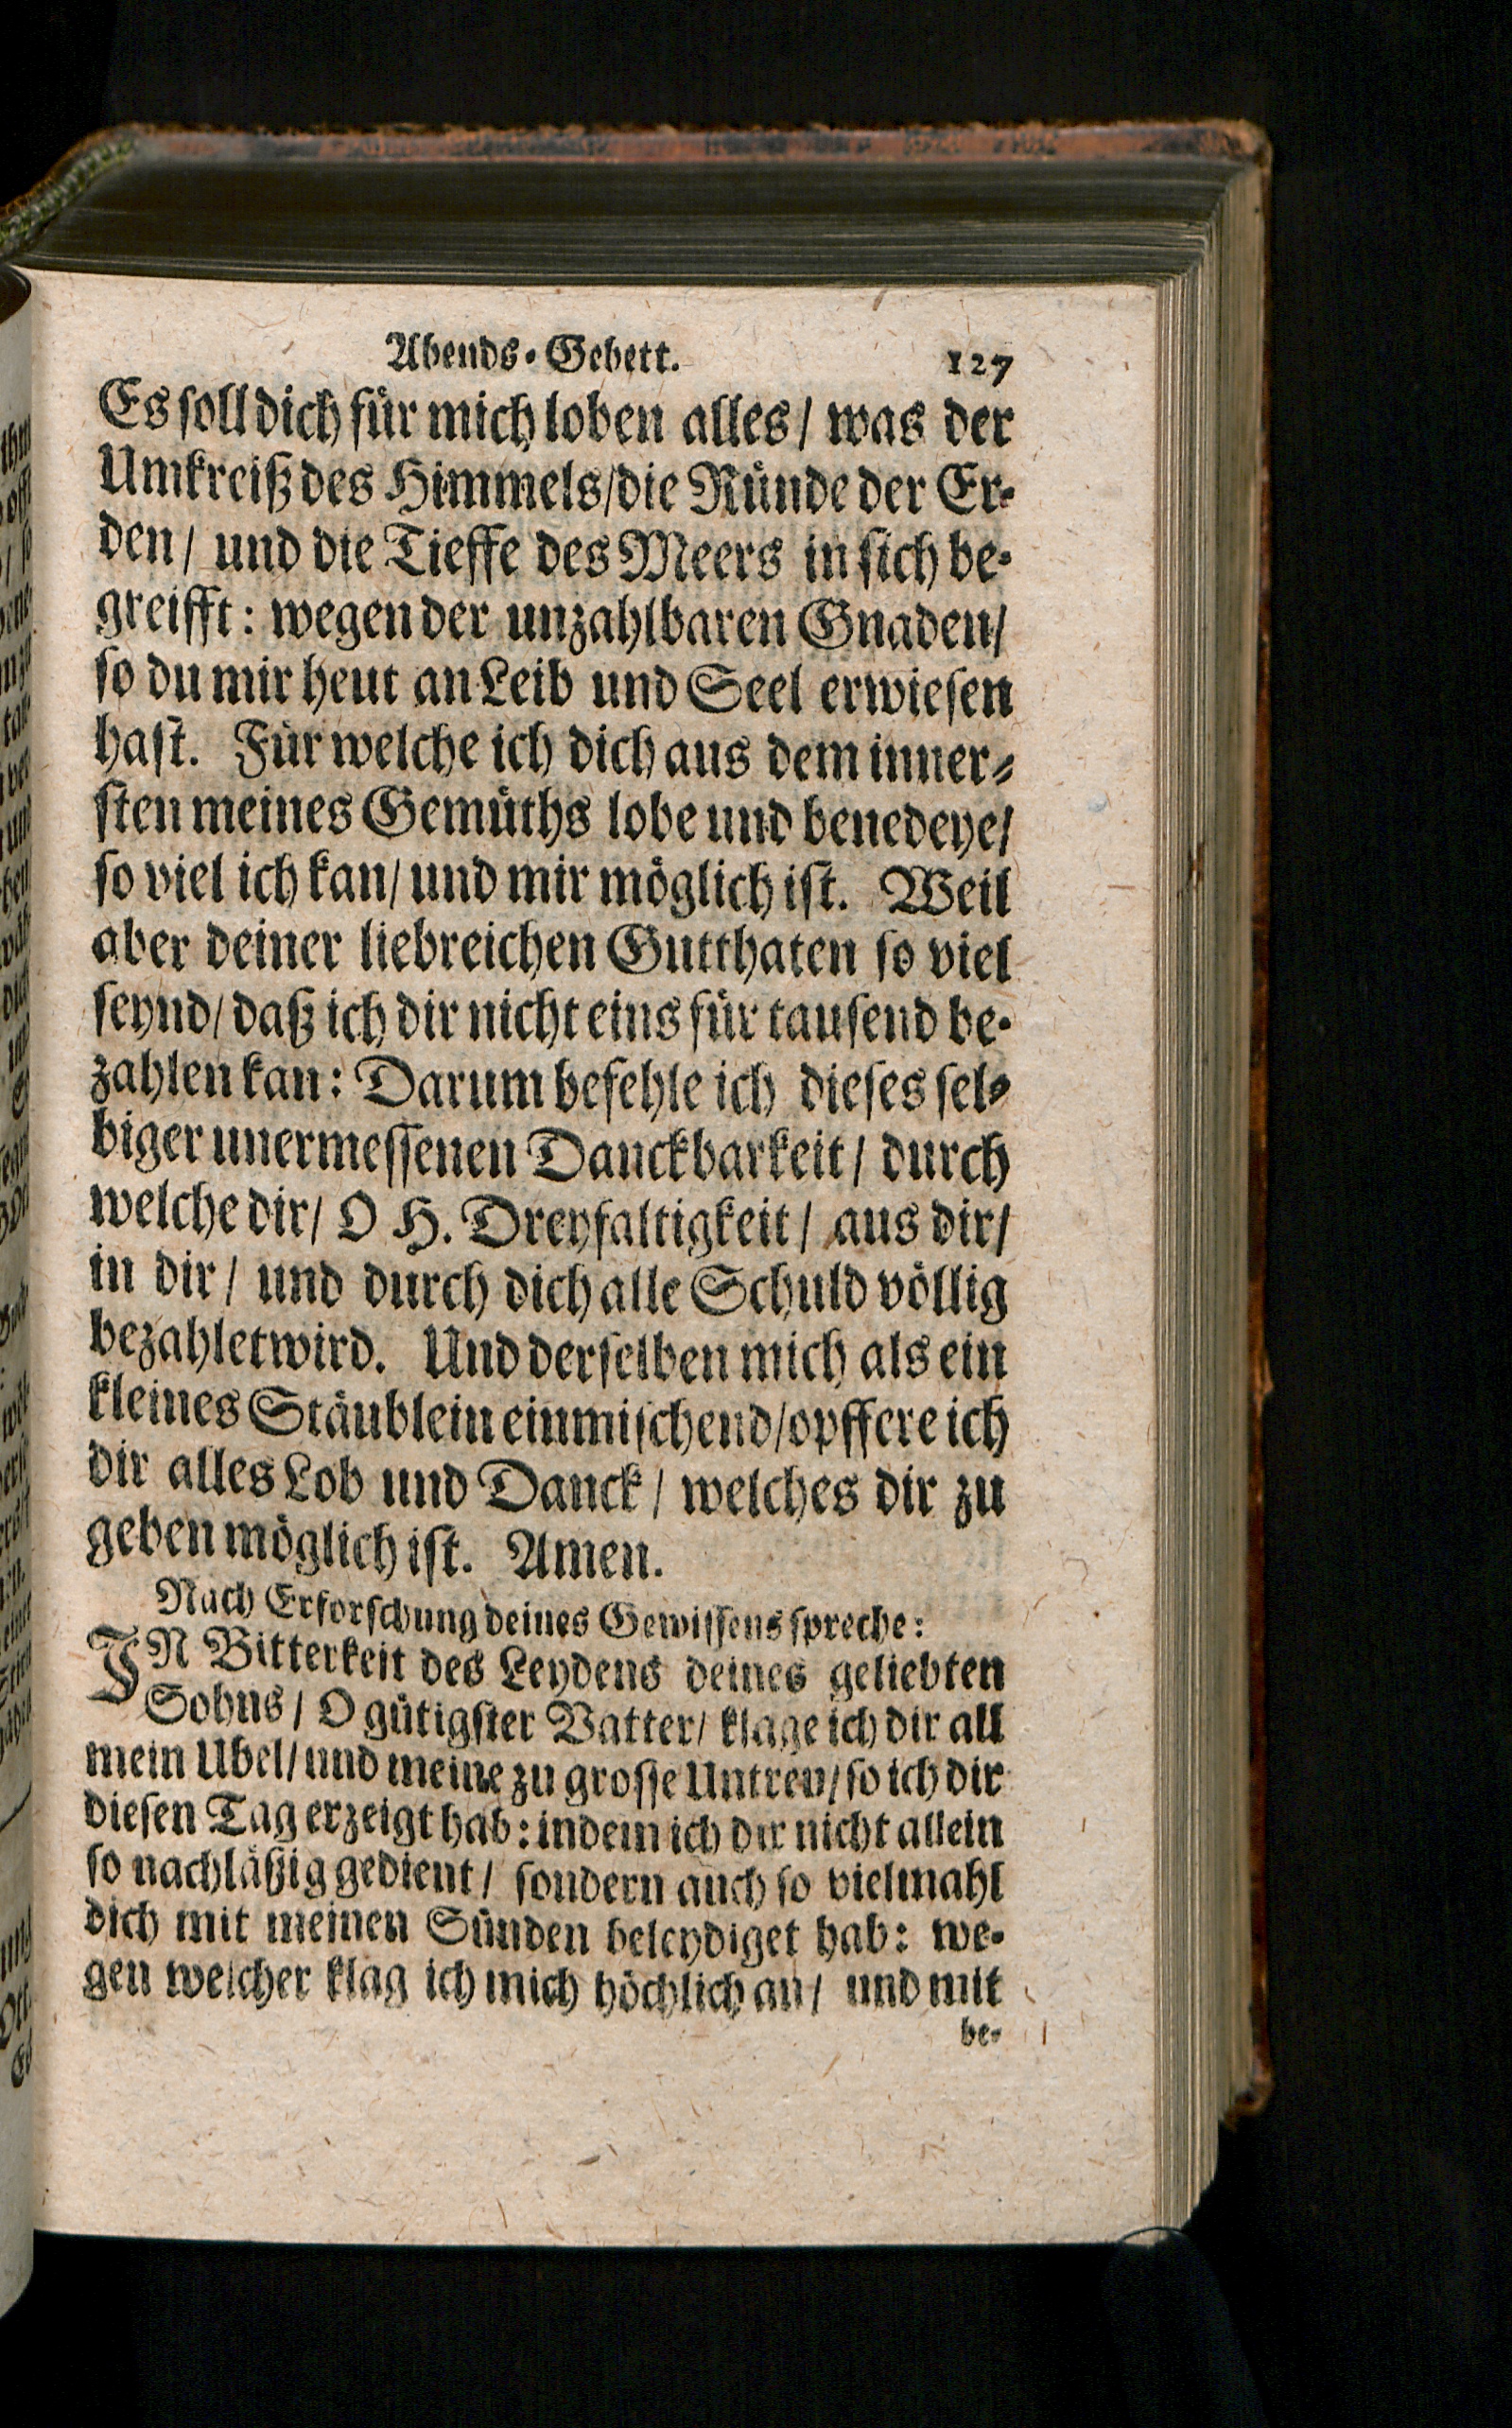 Abends-Gebett. 127
Es soll dich für mich loben alles / was der
Umkreiß des Himmels / die Ründe der Er-
den / und die Tieffe des Meers in sich be-
greifft: wegen der unzahlbaren Gnaden /
so du mir heut an Leib und Seel erwiesen
hast. Für welche ich dich aus dem inner-
sten meines Gemüths lobe und benedeye /
so viel ich kan / und mir möglich ist. Weil
aber deiner liebreichen Gutthaten so viel
seynd / daß ich dir nicht eins für tausend be-
zahlen kan: Darum befehle ich dieses sel-
biger unermessenen Danckbarkeit / durch
welche dir / O H. Dreyfaltigkeit / aus dir /
in dir / und durch dich alle Schuld völlig
bezahlet wird. Und derselben mich als ein
kleines Stäublein einmischend / opffere ich
dir alles Lob und Danck / welches dir zu
geben möglich ist. Amen.
Nach Erforschung deines Gewissens spreche:
IN Bitterkeit des Leydens deines geliebten
Sohns / O gütigster Vatter / klage ich dir all
mein Ubel / und meine zu grosse Untreu / so ich dir
diesen Tag erzeigt hab: indem ich dir nicht allein
so nachläßig gedient / sondern auch so vielmahl
dich mit meinen Sünden beleydiget hab: we-
gen welcher klag ich mich höchlich an / und mit
be-